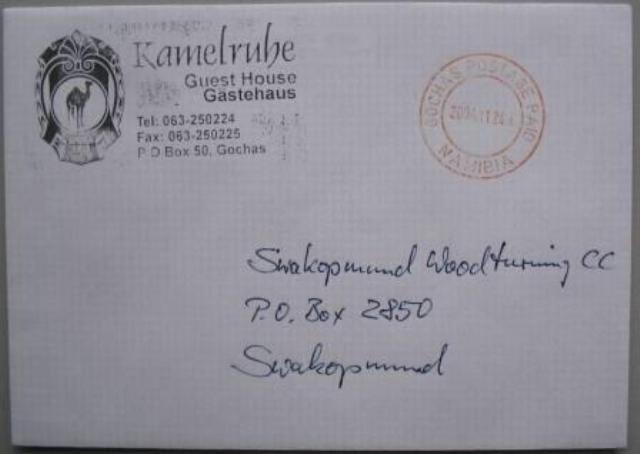 Kamelruhe
Guest House
Gästehaus
Tel: 063-250224
Fax: 063-250225
P O Box 50, Gochas
GOCHAS POSTAGE PAID
NAMIBIA
Swakopmund Woodturning CC
P.O. Box 2850
Swakopmund